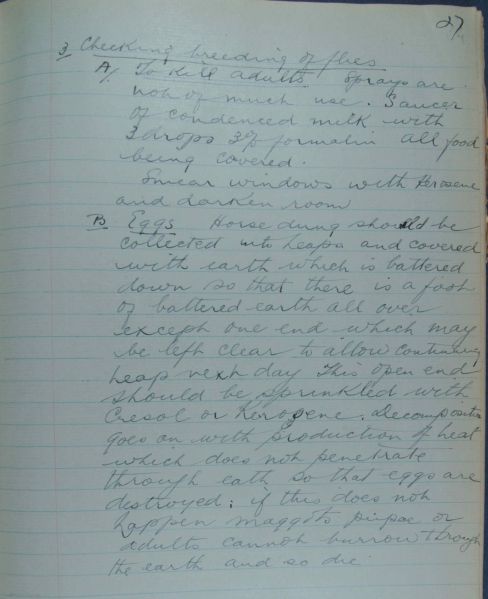 27
3 Checking breeding of flies
A/. To kill adults. Sprays are
not of much use. Saucer
of condensed milk with
3 drops 3% formalin all food
being covered.
Smear windows with Kerosene
and darken room
B Eggs Horse dung should be
collected into heaps and covered
with earth which is battered
down so that there is a foot
of battered earth all over
except one end which may
be left clear to allow continuing
heap next day This open end
should be sprinkled with
Cresol or Kerosene. Decomposition
goes on with production of heat
which does not penetrate
through eath so that eggs are
destroyed; if this does not
happen maggots pupae or
adults cannot burrow through
the earth and so die